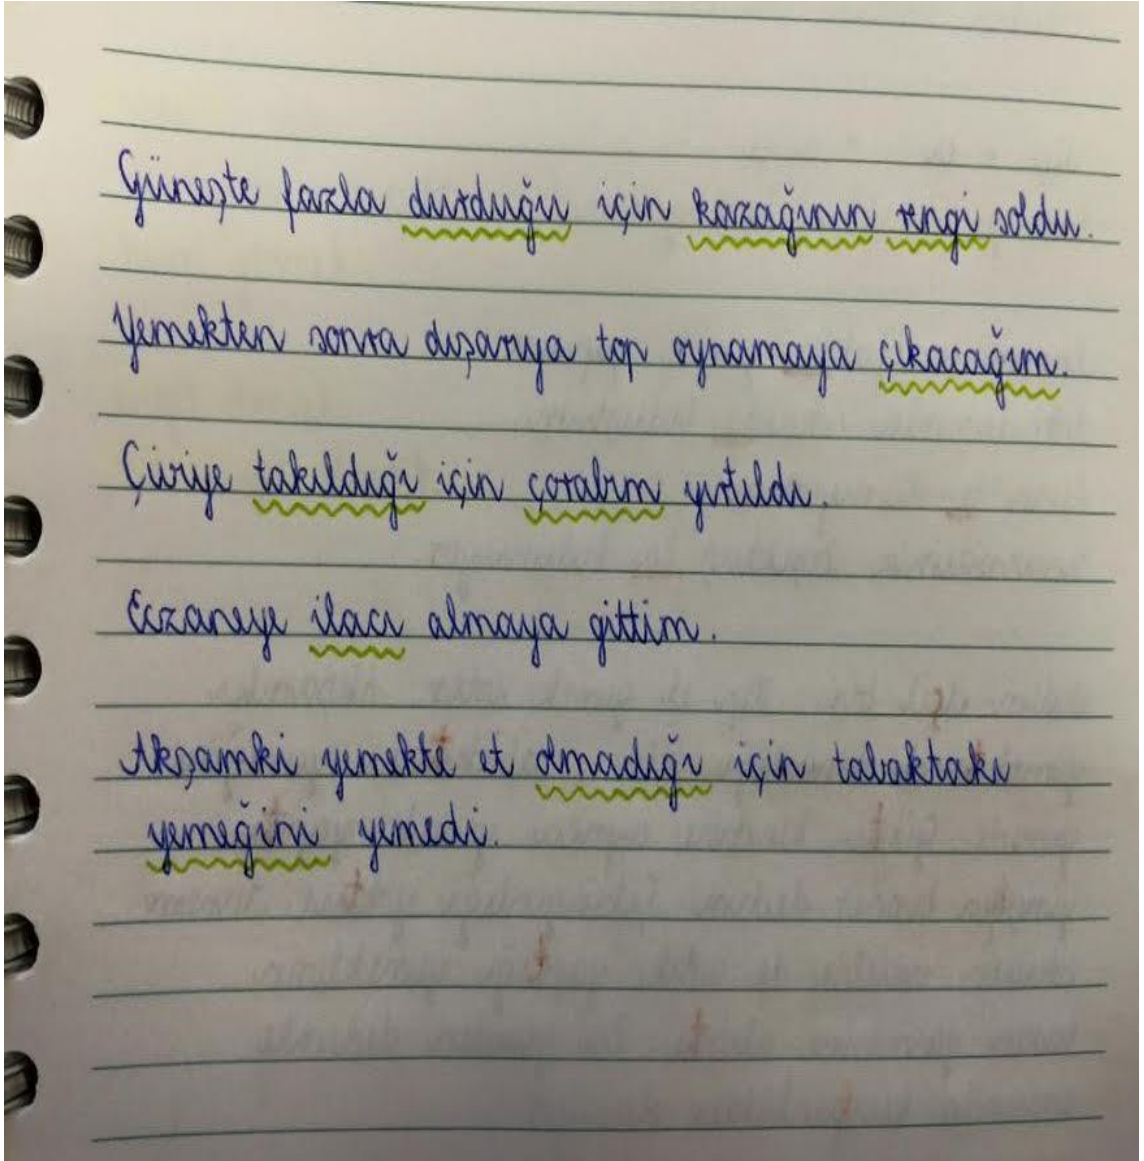 Güneşte fazla durduğu için kazağının rengi soldu.
Yemekten sonra dışarıya top oynamaya çıkacağım.
Çiviye takıldığı için çorabım yırtıldı.
Eczaneye ilacı almaya gittim.
Akşamki yemekte et olmadığı için tabaktaki
yemeğini yemedi.